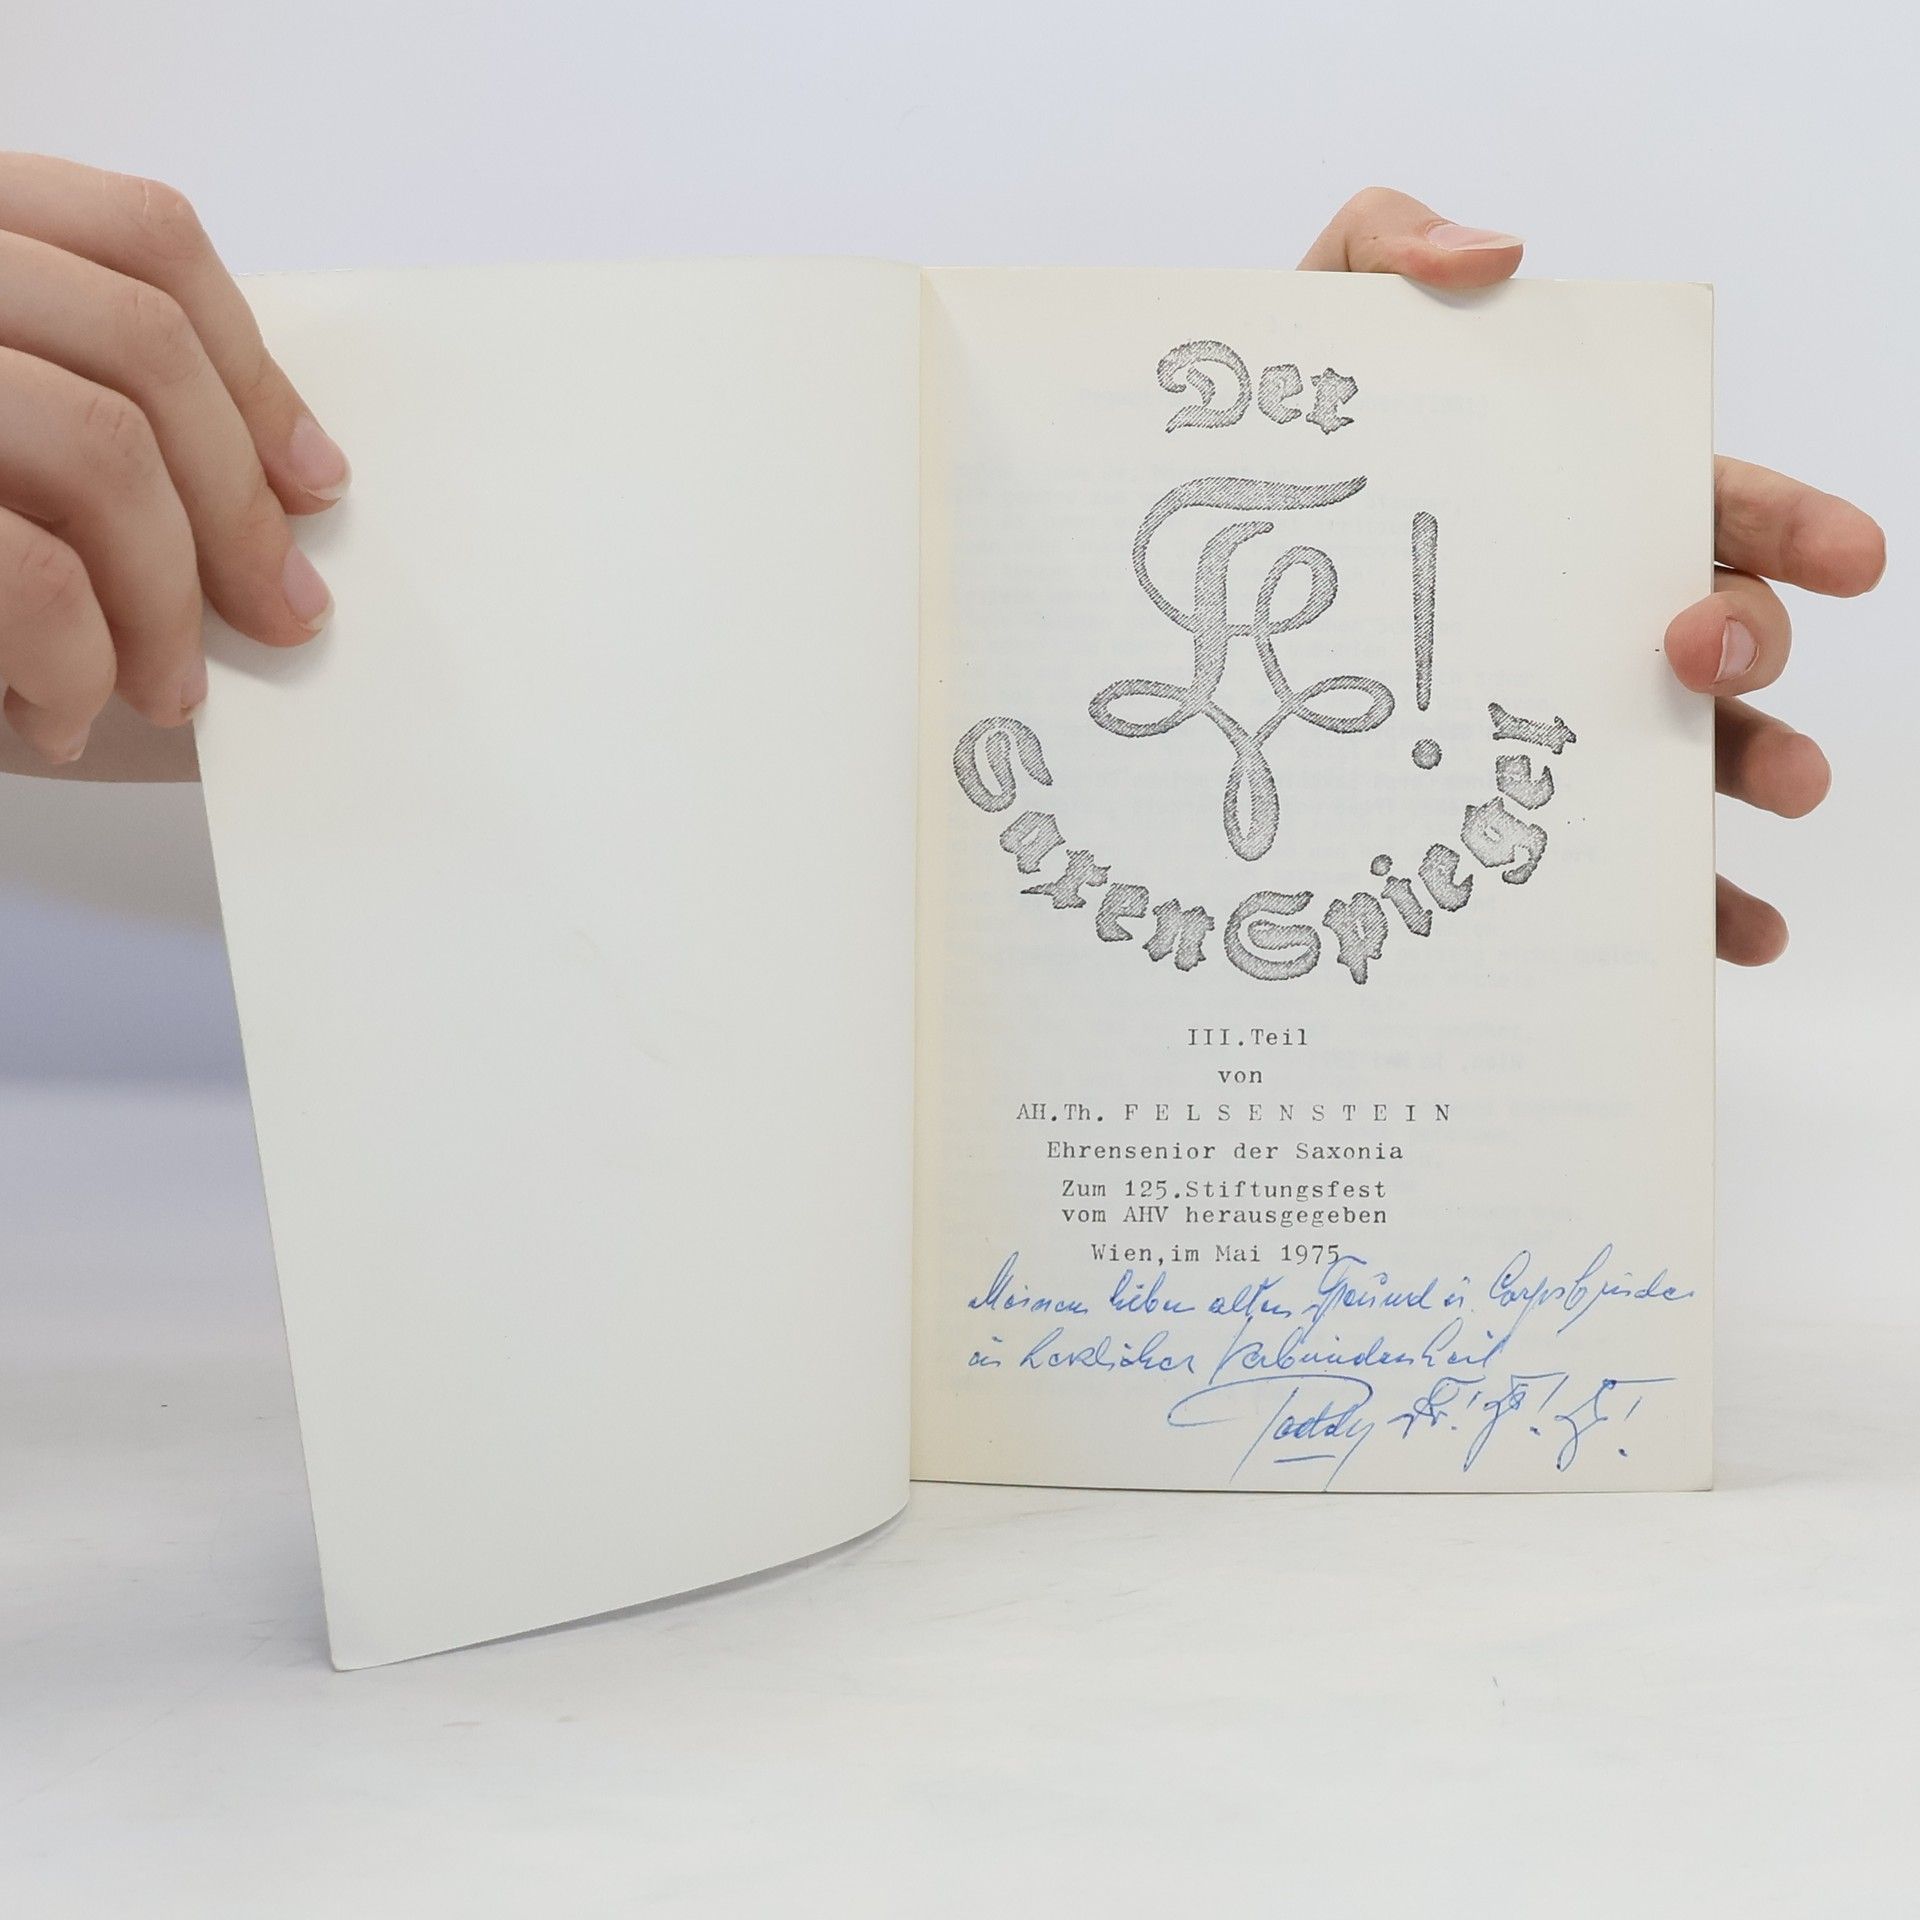 Der
SaxenSpiegel
III.Teil
von
AH.Th. FELSENSTEIN
Ehrensenior der Saxonia
Zum 125.Stiftungsfest
vom AHV herausgegeben
Wien,im Mai 1975
Meinem lieben alten Freund u. Corpsbruder
in herzlicher Verbundenheit